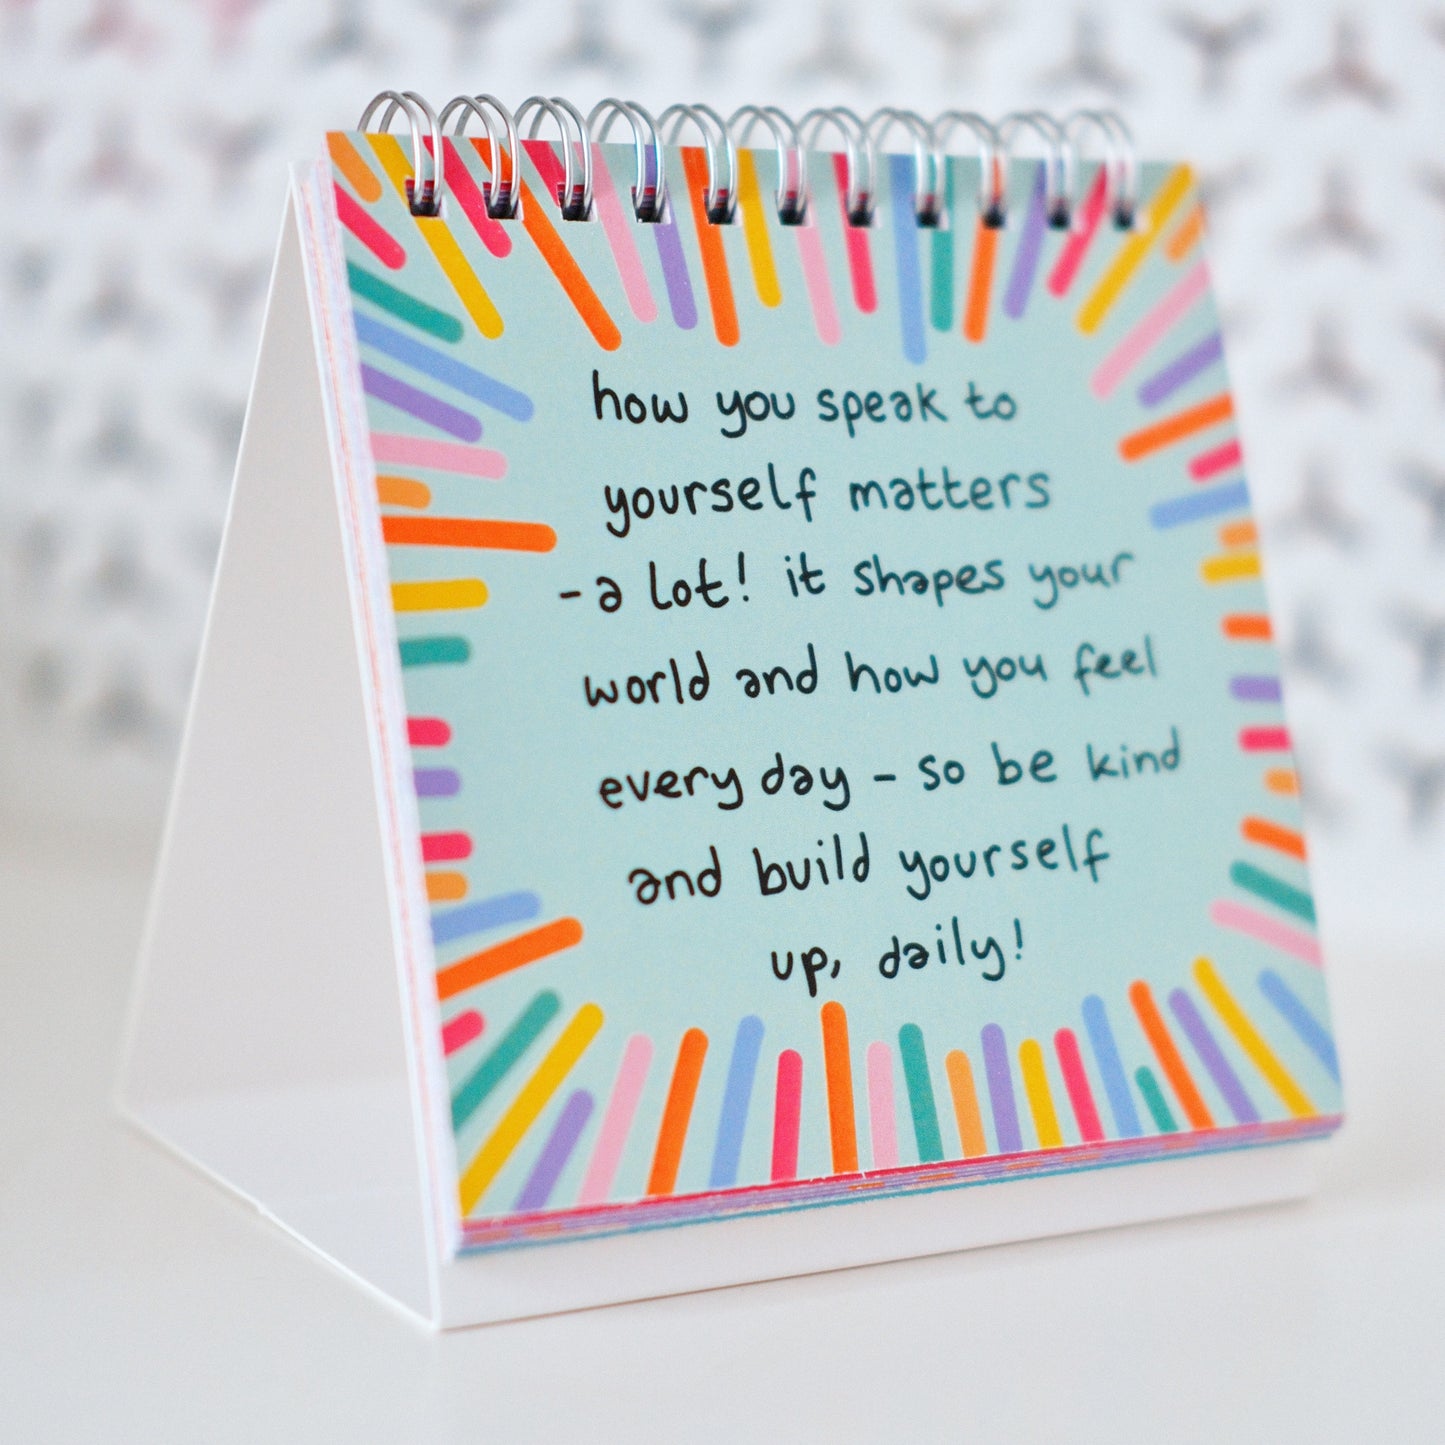 how you speak to
yourself matters
- a lot! it shapes your
world and how you feel
every day - so be kind
and build yourself
up, daily!